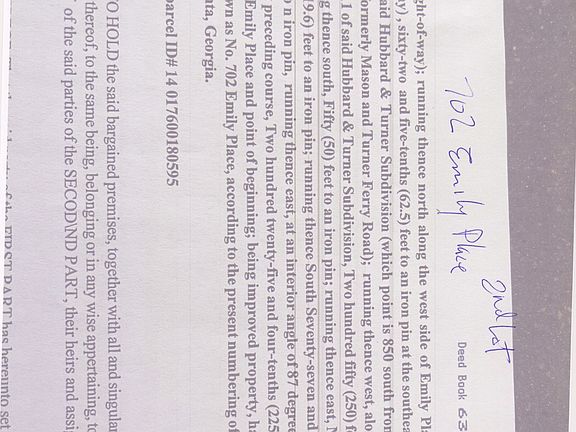 702 Emily Place
2nd Lot
Deed Book 63
ght-of-way); running thence north along the west side of Emily Pla
y), sixty-two and five-tenths (62.5) feet to an iron pin at the southea
aid Hubbard & Turner Subdivision (which point is 850 south from
ormerly Mason and Turner Ferry Road); running thence west, alo
1 of said Hubbard & Turner Subdivision, Two hundred fifty (250) f
g thence south, Fifty (50) feet to an iron pin; running thence east, N
(9.6) feet to an iron pin; running thence South Seventy-seven and
n iron pin, running thence east, at an interior angle of 87 degree
preceding course, Two hundred twenty-five and four-tenths (225
Emily Place and point of beginning; being improved property, ha
wn as No. 702 Emily Place, according to the present numbering of
nta, Georgia.
parcel ID# 14 017600180595
TO HOLD the said bargained premises, together with all and singular
thereof, to the same being, belonging or in any wise appertaining, to
of the said parties of the SECOND PART, their heirs and assi
of the FIRST PART has hereunto set